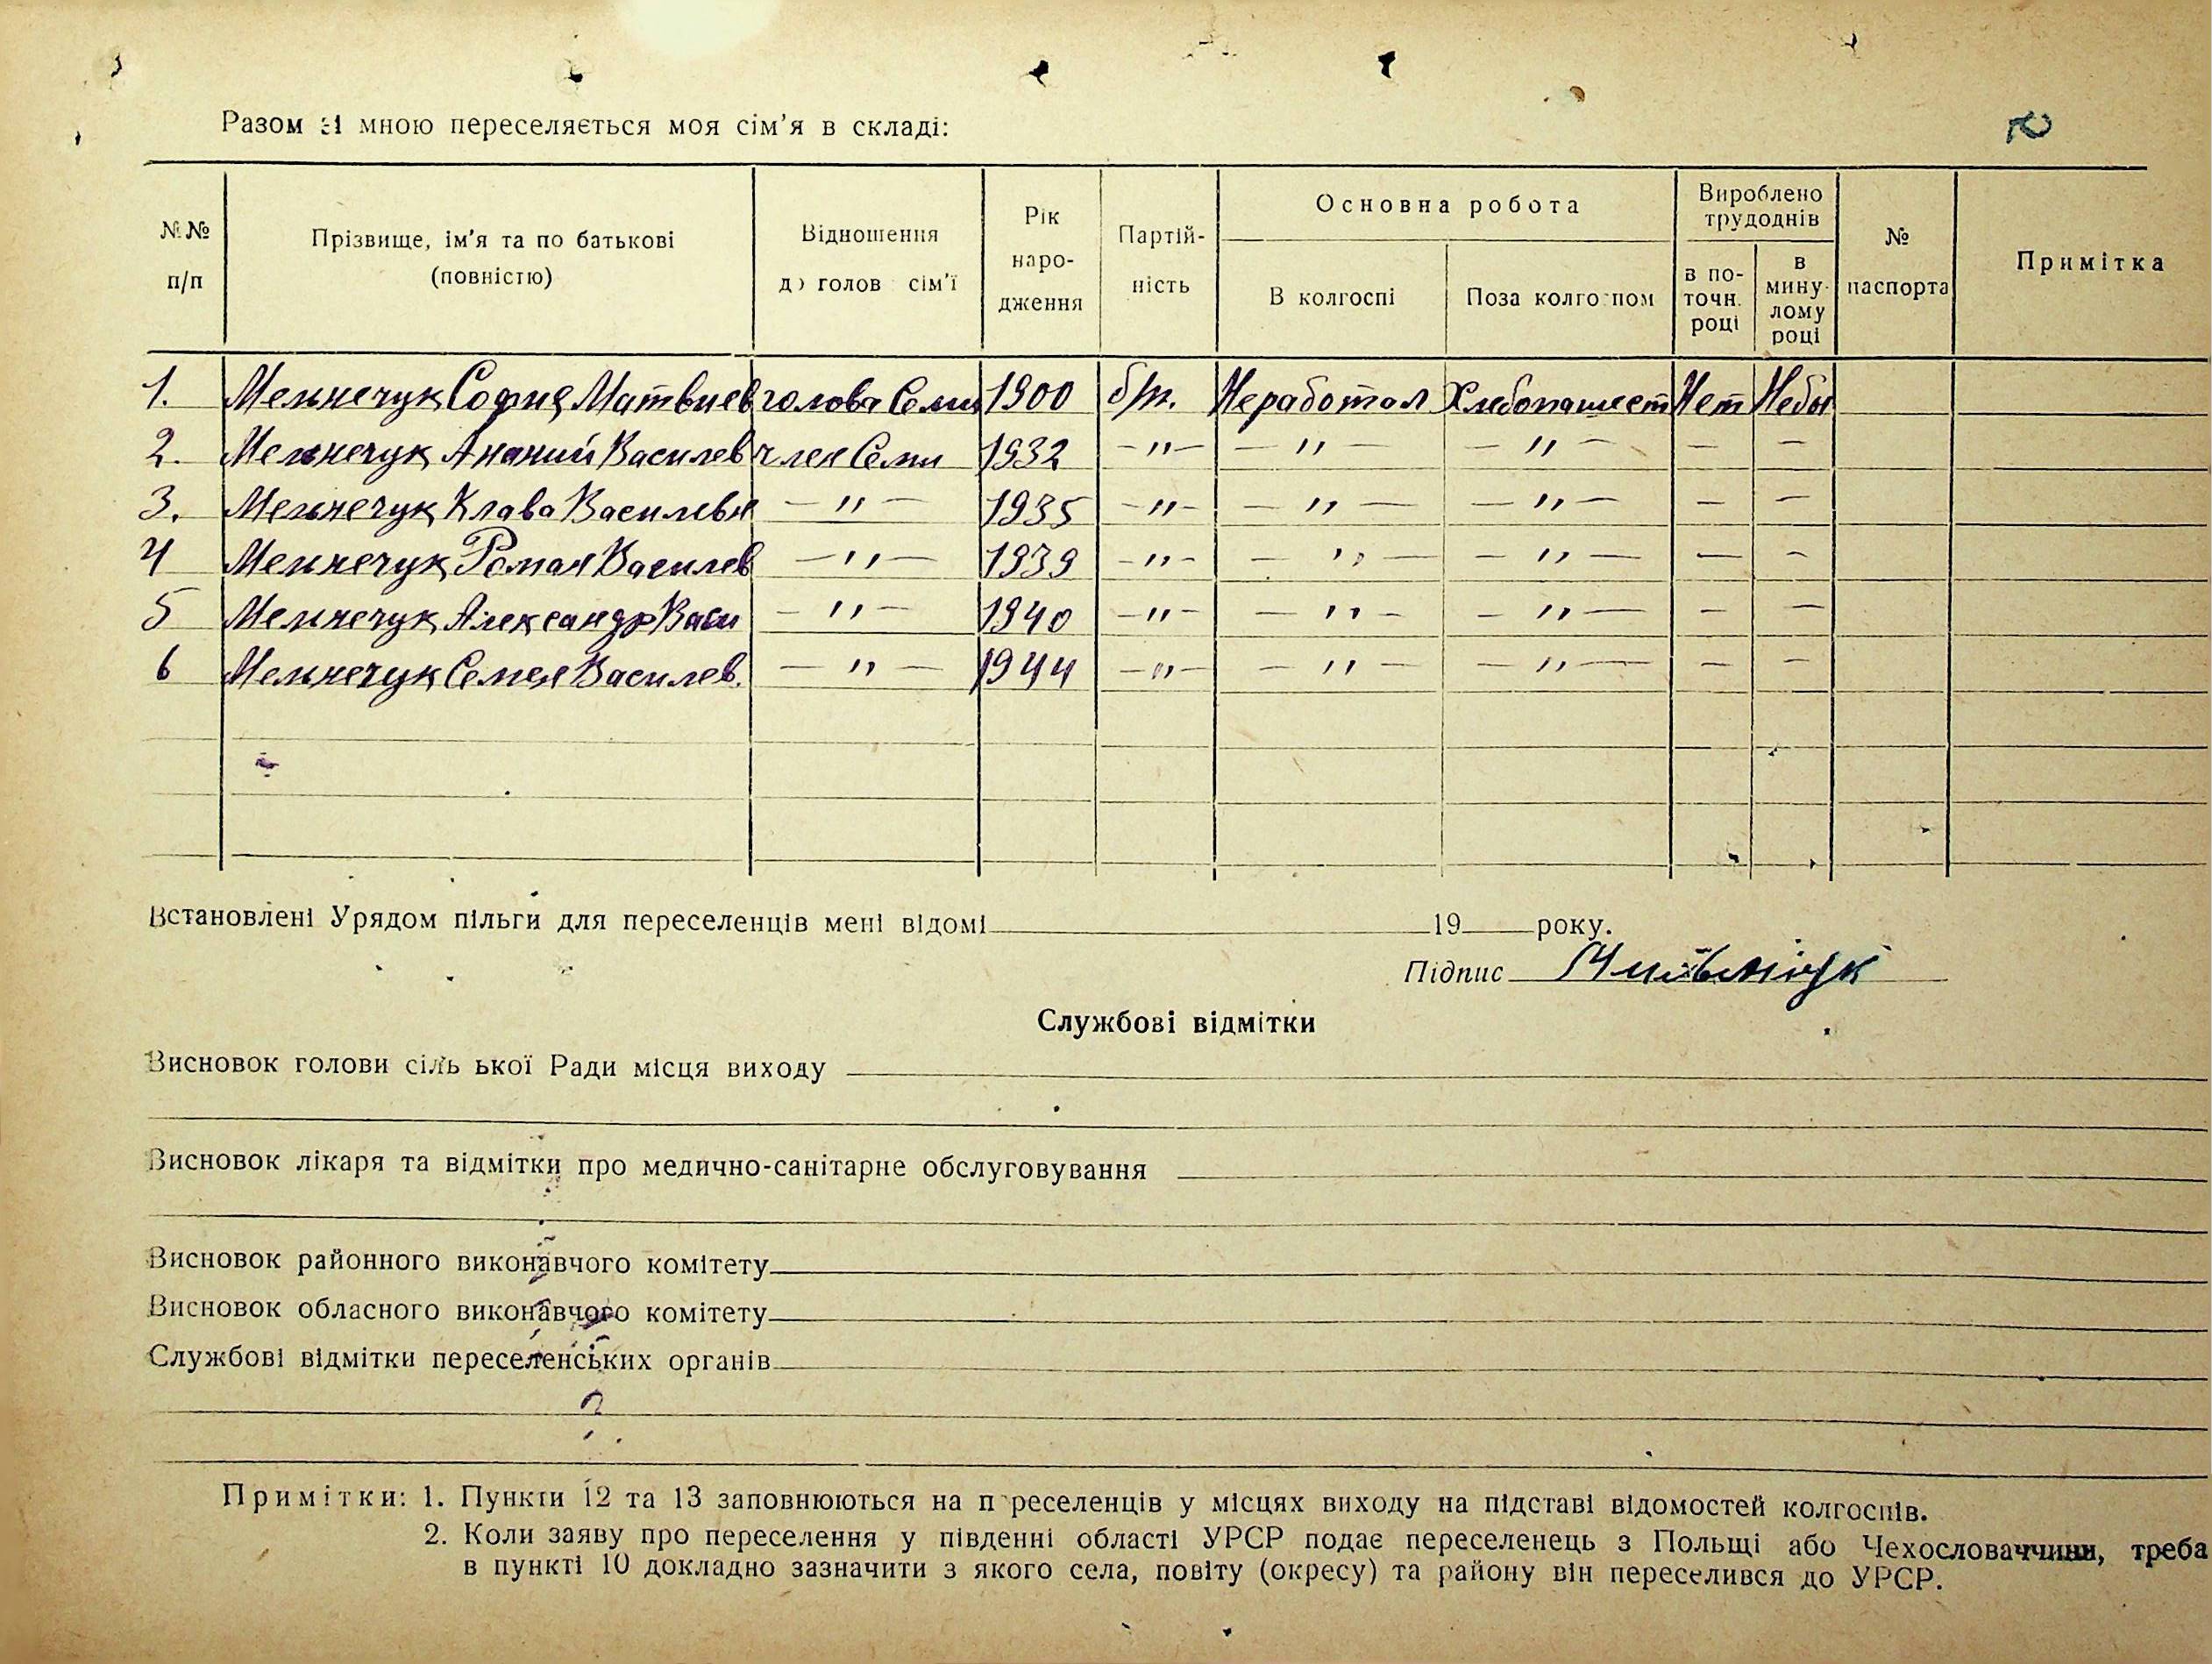 Разом зі мною переселяється моя сім'я в складі:
2
№№ п/п
Прізвище, ім'я та по батькові (повністю)
Відношення до голов сім'ї
Рік народження
Партійність
Основна робота
В колгоспі
Поза колгоспом
Вироблено трудоднів
в поточн. році
в минулому році
№ паспорта
Примітка
1. Мельнечук София Матвиев голова Семи 1900 б/п. Неработал Хлебопашест Нет Небы
2. Мельнечук Ананий Василев член Семи 1932 -"- -"- -"- - -
3. Мельнечук Клава Василевн -"- 1935 -"- -"- -"- - -
4 Мельнечук Роман Василев -"- 1939 -"- -"- -"- - -
5 Мельнечук Александр Васи -"- 1940 -"- -"- -"- - -
6 Мельнечук Семен Василев. -"- 1944 -"- -"- -"- - -
Встановлені Урядом пільги для переселенців мені відомі 19 року.
Підпис
Службові відмітки
Висновок голови сільської Ради місця виходу
Висновок лікаря та відмітки про медично-санітарне обслуговування
Висновок районного виконавчого комітету
Висновок обласного виконавчого комітету
Службові відмітки переселенських органів
Примітки: 1. Пункти 12 та 13 заповнюються на переселенців у місцях виходу на підставі відомостей колгоспів.
2. Коли заяву про переселення у південні області УРСР подає переселенець з Польщі або Чехословаччини, треба
в пункті 10 докладно зазначити з якого села, повіту (окресу) та району він переселився до УРСР.